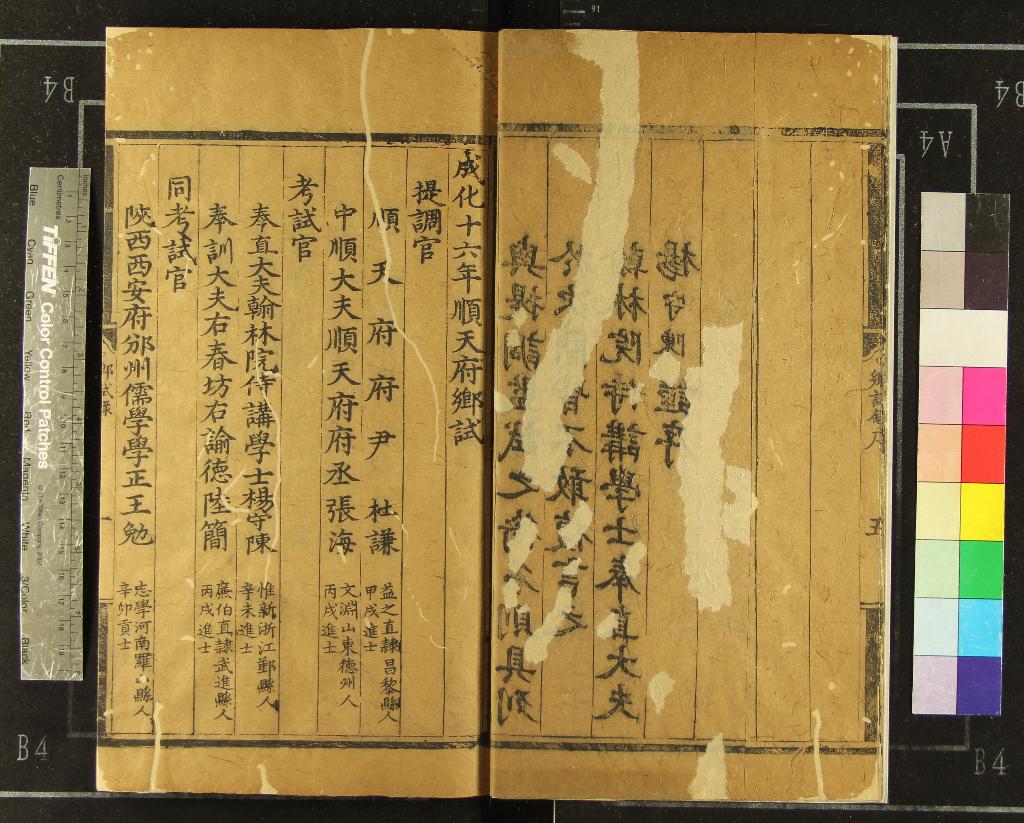 與提調監試之
具列
於
敢復言之
翰林院侍講學士奉直大夫
楊守陳謹序
成化十六年順天府鄉試
提調官
順天府府尹杜謙
益之直隸昌黎縣人
甲戌進士
中順大夫順天府府丞張海
文淵山東德州人
丙戌進士
考試官
奉直大夫翰林院侍講學士楊守陳
惟新浙江鄞縣人
辛未進士
奉訓大夫右春坊右諭德陸簡
廉伯直隸武進縣人
丙戌進士
同考試官
陝西西安府邠州儒學學正王勉
志學河南羅山縣人
辛卯貢士
TIFFEN Color Control Patches
Blue
Cyan
Green
Yellow
Red
Magenta
White
3/Color
Black
Centimetres
Inches
B4
B4
B4
B4
A4